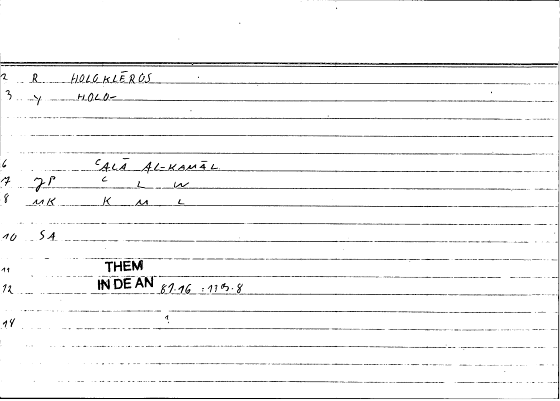 2 R HOLOKLĒROS
3 Y HOLO-
6 ʿALĀ AL-KAMĀL
7 JP ʿ L W
8 MK K M L
10 SA
11 THEM
12 IN DE AN 87.16 :113.8
14 1